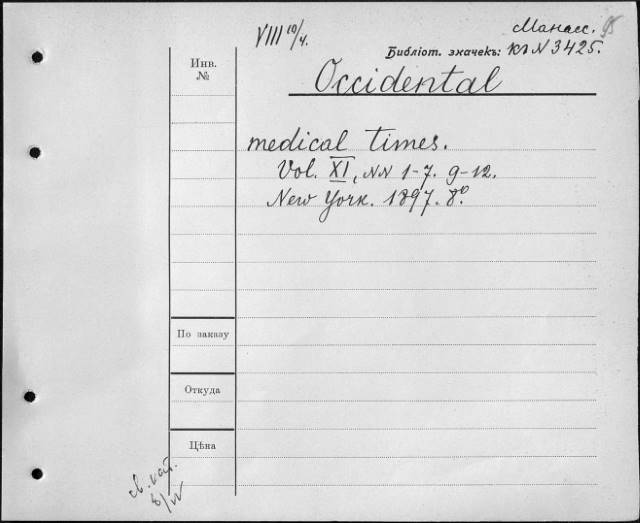 VIII 10/4.
Манасс. 95
Библіот. значекъ: кл N 3425.
Инв.
№
Occidental
medical times.
Vol. XI, NN 1-7. 9-12.
New York. 1897. 8º.
По заказу
Откуда
Цѣна